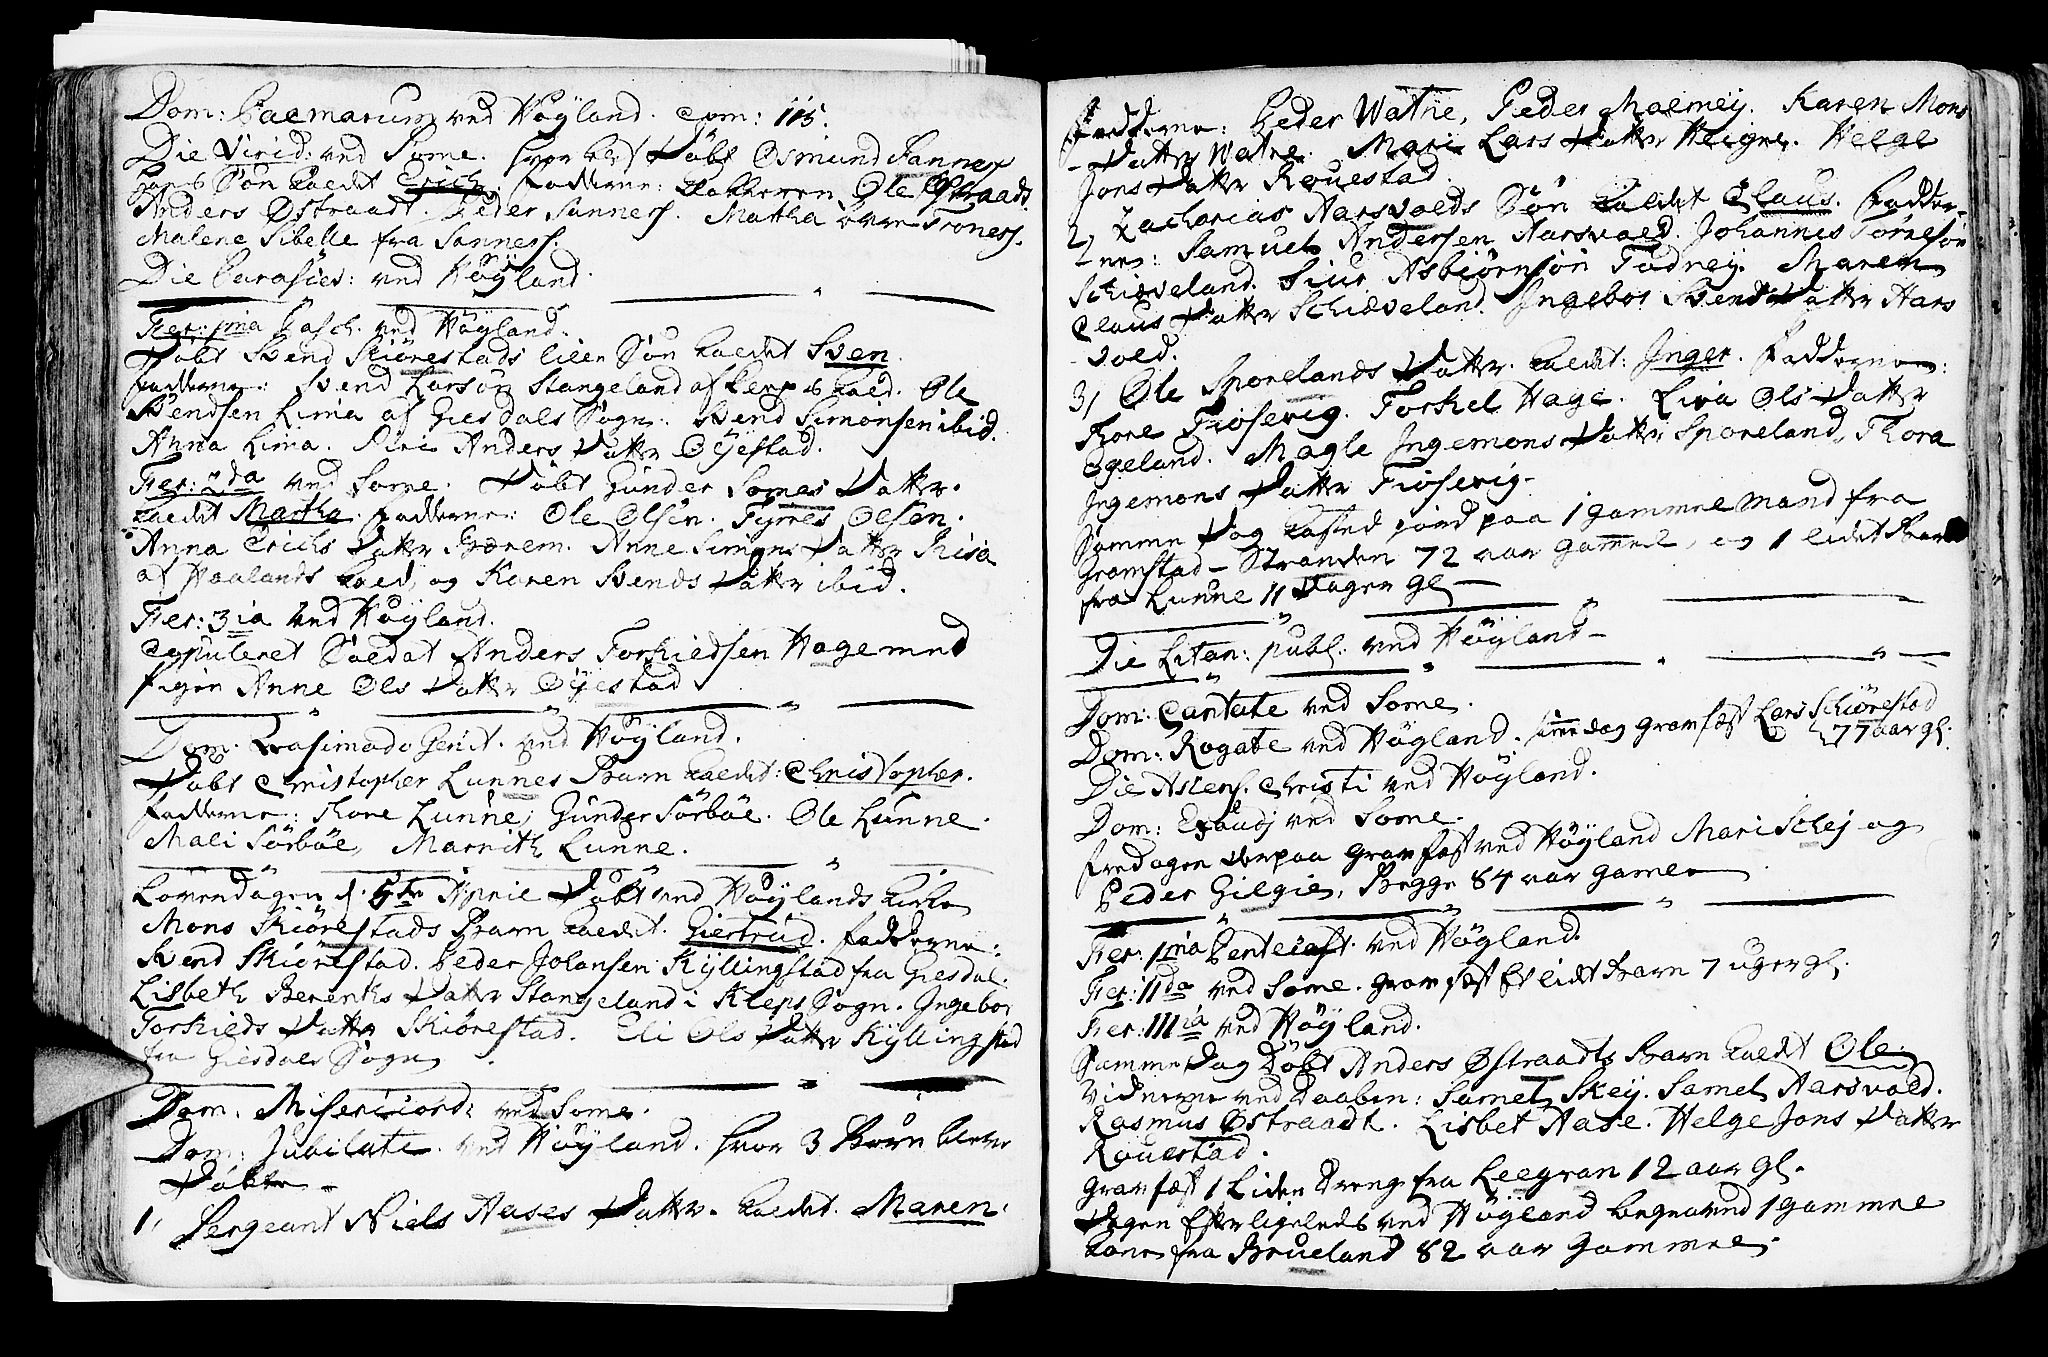 Dom: Palmarum ved Höyland. Com: 115.
Die Virid: ved Some. hvor blef Döbt Osmund Sanners
hans Sön kaldet Erich. Fadderne: Klokkeren Ole Östraadt
Anders Östraadt. Peder Sanners. Martha Troners.
Malene Sibelle fra Sanners.
Die Parasces: ved Höyland.
Fer: 1ma Pasch. ved Höyland.
Döbt Svend Skiörestads liden Sön kaldet Sven.
Fadderne: Svend Larsön Stangeland af Kleps Kald. Ole
Svendsen Lima af Giesdals Sogn. Svend Simonsen ibid.
Anna Lima. Siri Anders Datter Öyestad.
Fer: 2da ved Some. Döbt Gunder Somes Datter.
kaldet Martha. Fadderne: Ole Olsen. Tyrres Olsen.
Anna Erichs Datter. Anne Simons Datter Risa
af Haalands Kald, og Karen Svends Datter ibid.
Fer: 3ia ved Höyland.
Copuleret Soldat Anders Torkieldsen Hage med
Pigen Anne Ols Datter Öyestad
Dom. Qvasimodo Genit. ved Höyland.
Döbt Christopher Lunnes Barn kaldet: Christopher.
Fadderne: Thore Lunne, Gunder Sörböe. Ole Lunne.
Mali Sörböe, Marrith Lunne.
Löverdagen d. 5te April Döbt ved Höylands Kirke
Mons Skiörestads Barn kaldet. Giertrud. Fadderne:
Svend Skiörestad. Peder Johansen Kyllingstad fra Giesdal.
Lisbeth Berents Datter Stangeland i Kleps Sogn. Ingebor
Torkields Datter Skiörestad. Eli Ols Datter Kyllingstad
fra Giesdals Sogn.
Dom. Misericord: ved Some.
Dom: Jubilate. ved Höyland. hvor 3 Börn bleve
Döbte
1, Sergeant Niels Hases Datter. kaldet. Maren.
Fadderne: Peder Watne, Peder Malmey. Karen Mons
Datter Watne. Mari Lars Datter Heigre. Helge
Jons Datter Rouestad.
2, Zacharias Aarsvolds Sön kaldet Claus. Fadder-
ne: Samuel Andersen Aarsvold. Johannes Törresön
Schiæveland. Siur Asbiörnsön Tudney. Maren
Claus Datter Schiæveland. Ingebor Svends Datter Aars
vold.
3, Ole Sporelands Datter. kaldet: Inger. Fadderne:
Thore Fiosevig. Torkel Hage. Liva Ols Datter
Egeland. Magle Ingemons Datter Sporeland, Thora
Ingemons Datter Fiosevig.
Samme Dag kasted jord paa 1 gammel Mand fra
Gramstad-Stranden 72 aar gammel, og 1 lidet Barn
fra Lunne 11 Dager gl
Die Litan: publ: ved Höyland
Dom: Cantate ved Some.
Dom: Rogate ved Höyland. samme dag Gravfæst Lars Schiörestad
77 aar gl.
Die Ascens. Christi ved Höyland.
Dom: Exaudj ved Some.
Fredagen derpaa Gravfæst ved Höyland Mari Schej og
Peder Gilgie, Begge 84 aar gamle
Fer: 1ma Pentecost. ved Höyland.
Fer: IIda ved Some. Gravfæst Et lidt Barn 7 uger gl.
Fer: IIIia ved Höyland.
Samme Dag Döbt Anders Östraadts Barn kaldt Ole.
Vidnerne ved Daaben: Samel Skej. Samel Aarsvold.
Rasmus Östraadt. Lisbet Hase. Helge Jons Datter
Rouestad.
Gravfæst 1 Liden Dreng fra Leegran 12 aar gl.
Dagen Efter ligeleds ved Höyland begraved 1 gammel
kone fra Brueland 82 aar Gammel.